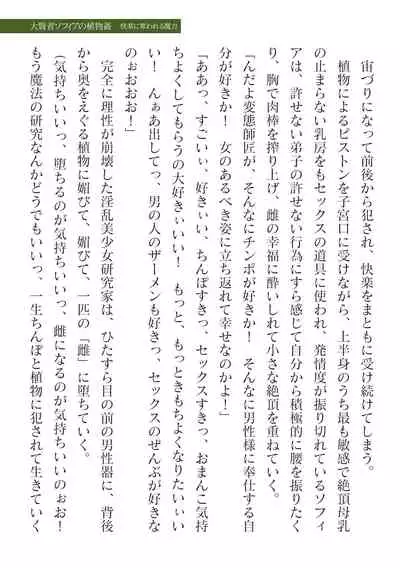 大賢者ソフィアの植物姦　快楽に奪われる魔力
宙づりになって前後から犯され、快楽をまともに受け続けてしまう。
植物によるピストンを子宮口に受けながら、上半身のうち最も敏感で絶頂母乳
の止まらない乳房をもセックスの道具に使われ、発情度が振り切れているソフィ
アは、許せない弟子の許せない行為にすら感じて自分から積極的に腰を振りたく
り、胸で肉棒を搾り上げ、雌の幸福に酔いしれて小さな絶頂を重ねていく。
「んだよ変態師匠が、そんなにチンポが好きか！　そんなに男性様に奉仕する自
分が好きか！　女のあるべき姿に立ち返れて幸せなのかよ！」
「ああっ、すごいぃ、好きぃい、ちんぽすきっ、セックスすきっ、おまんこ気持
ちよくしてもらうの大好きぃいい！　もっと、もっときもちよくなりたいぃい
い！　んぁあ出してっ、男の人のザーメンも好きっ、セックスのぜんぶが好きな
のぉおおお！」
完全に理性が崩壊した淫乱美少女研究家は、ひたすら目の前の男性器に、背後
から奥をえぐる植物に媚びて、媚びて、一匹の「雌」に堕ちていく。
（気持ちいいっ、堕ちるのが気持ちいいっ、雌になるのが気持ちいいのぉお！
もう魔法の研究なんかどうでもいいっ、一生ちんぽと植物に犯されて生きていく